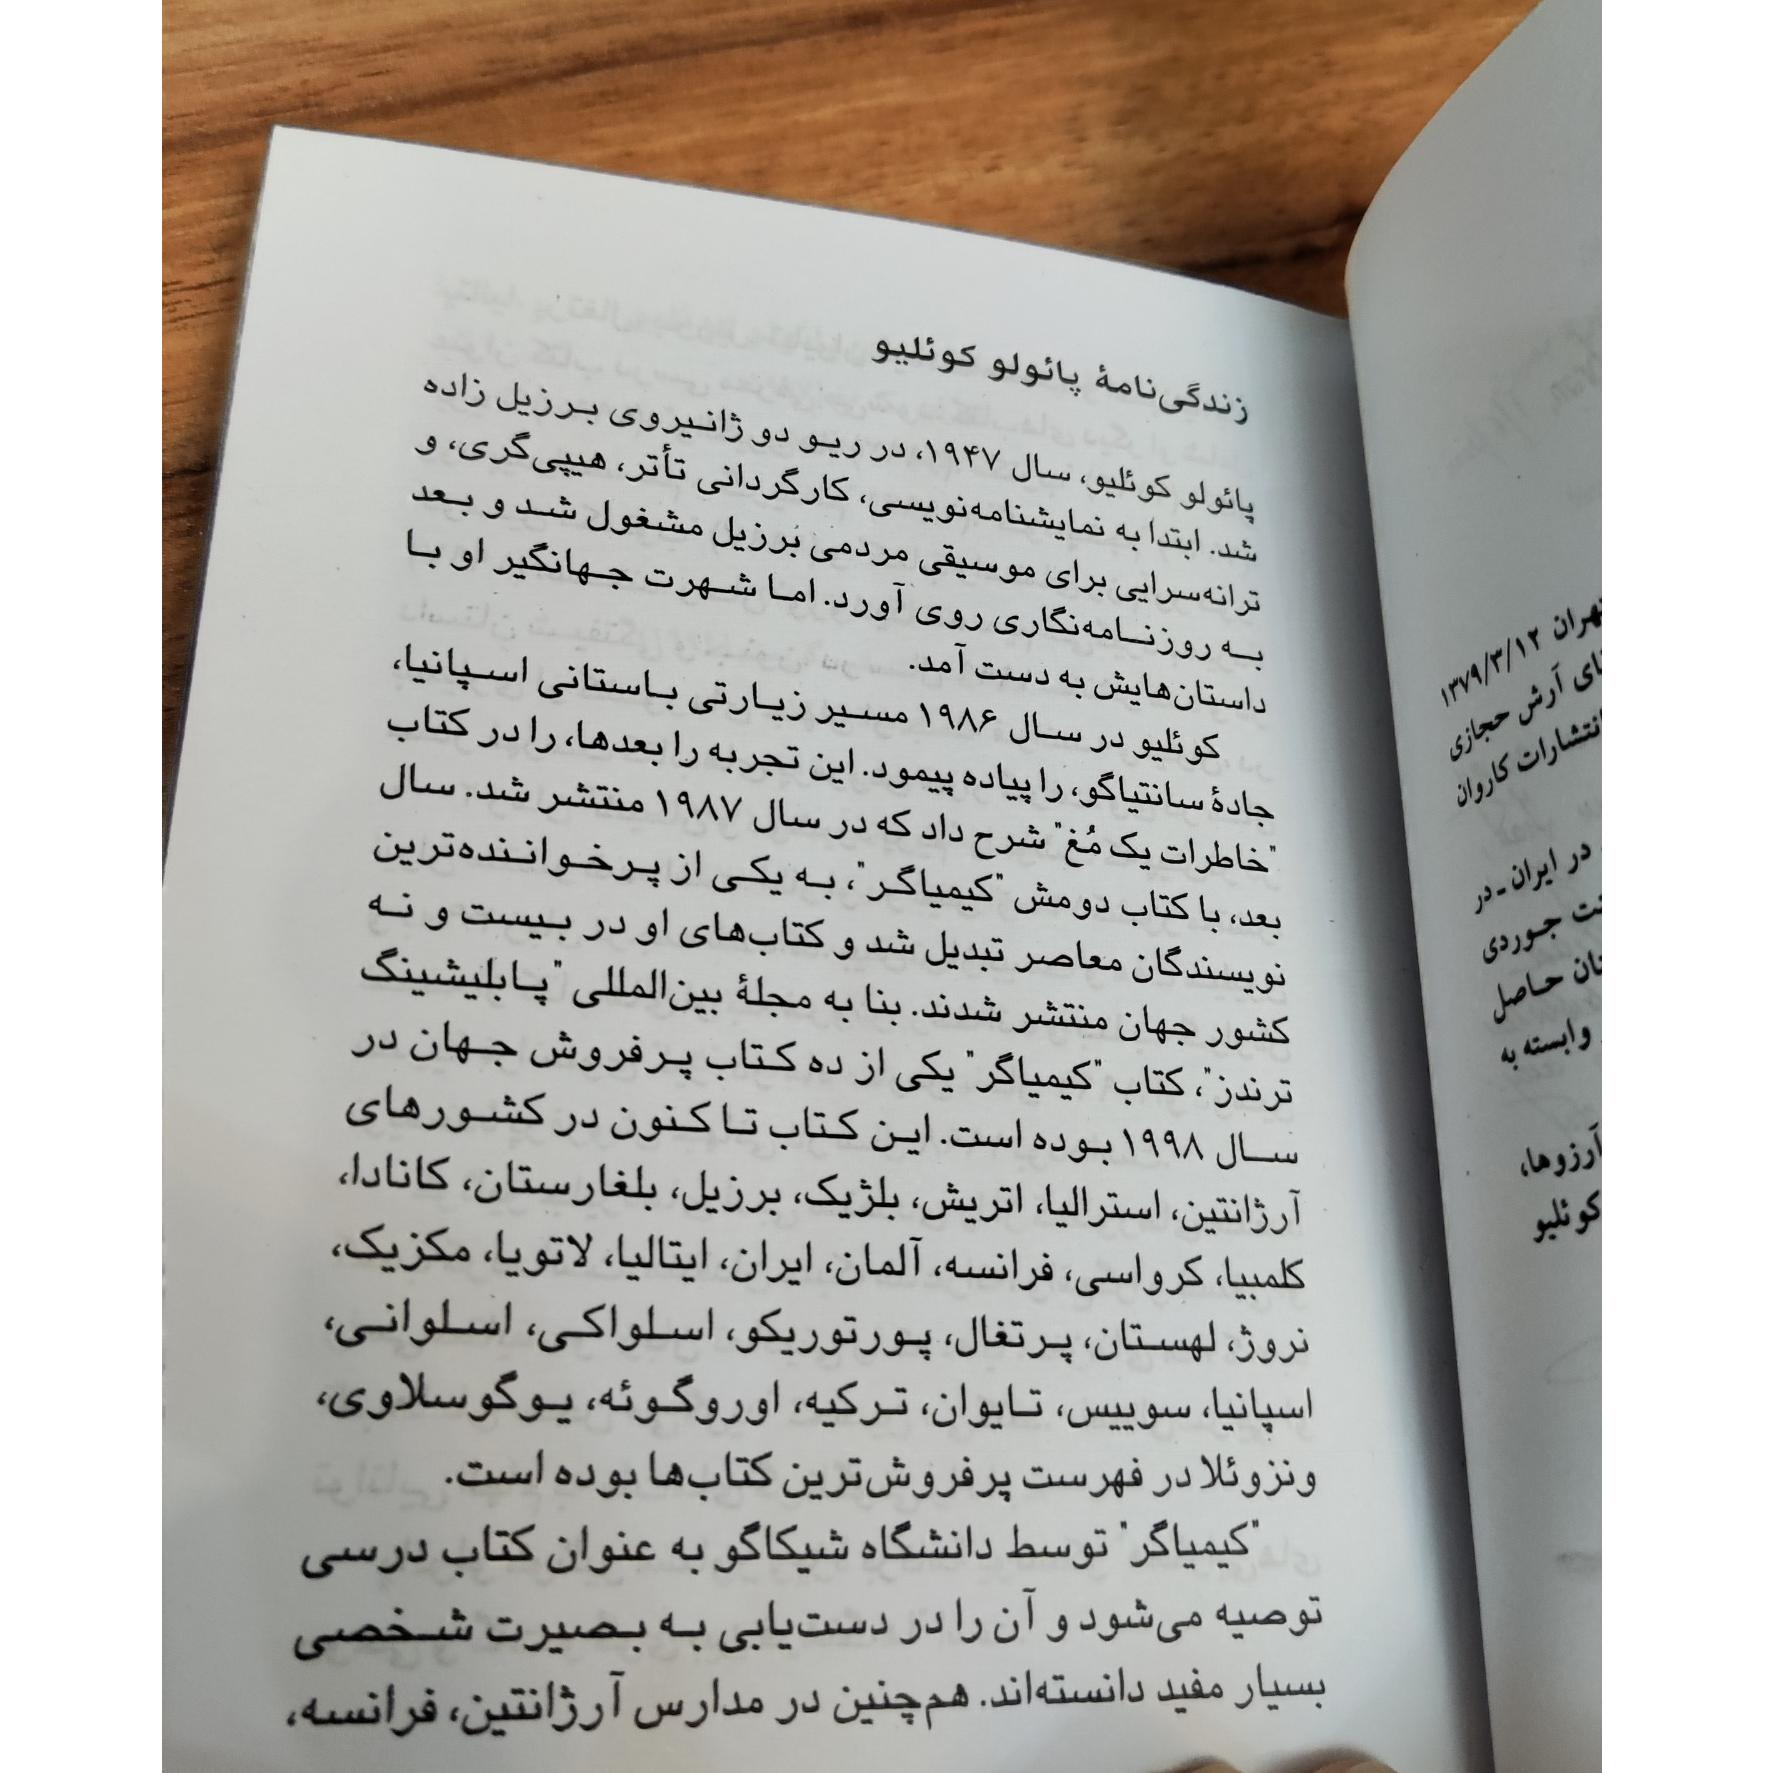 زندگی‌نامهٔ پائولو کوئلیو
پائولو کوئلیو، سال ۱۹۴۷، در ریو دو ژانیروی برزیل زاده
شد. ابتدا به نمایشنامه‌نویسی، کارگردانی تأتر، هیپی‌گری، و
ترانه‌سرایی برای موسیقی مردمی برزیل مشغول شد و بعد
به روزنامه‌نگاری روی آورد. اما شهرت جهانگیر او با
داستان‌هایش به دست آمد.
کوئلیو در سال ۱۹۸۶ مسیر زیارتی باستانی اسپانیا،
جادهٔ سانتیاگو، را پیاده پیمود. این تجربه را بعدها، را در کتاب
"خاطرات یک مُغ" شرح داد که در سال ۱۹۸۷ منتشر شد. سال
بعد، با کتاب دومش "کیمیاگر"، به یکی از پرخواننده‌ترین
نویسندگان معاصر تبدیل شد و کتاب‌های او در بیست و نه
کشور جهان منتشر شدند. بنا به مجلهٔ بین‌المللی "پابلیشینگ
ترندز"، کتاب "کیمیاگر" یکی از ده کتاب پرفروش جهان در
سال ۱۹۹۸ بوده است. این کتاب تا کنون در کشورهای
آرژانتین، استرالیا، اتریش، بلژیک، برزیل، بلغارستان، کانادا،
کلمبیا، کرواسی، فرانسه، آلمان، ایران، ایتالیا، لاتویا، مکزیک،
نروژ، لهستان، پرتغال، پورتوریکو، اسلواکی، اسلوانی،
اسپانیا، سوییس، تایوان، ترکیه، اوروگوئه، یوگوسلاوی،
ونزوئلا در فهرست پرفروش‌ترین کتاب‌ها بوده است.
"کیمیاگر" توسط دانشگاه شیکاگو به عنوان کتاب درسی
توصیه می‌شود و آن را در دست‌یابی به بصیرت شخصی
بسیار مفید دانسته‌اند. هم‌چنین در مدارس آرژانتین، فرانسه،
تهران ۱۳۷۹/۳/۱۲
آرش حجازی
انتشارات کاروان
در ایران ـ در
جوردی
حاصل
وابسته به
آرزوها،
کوئلیو